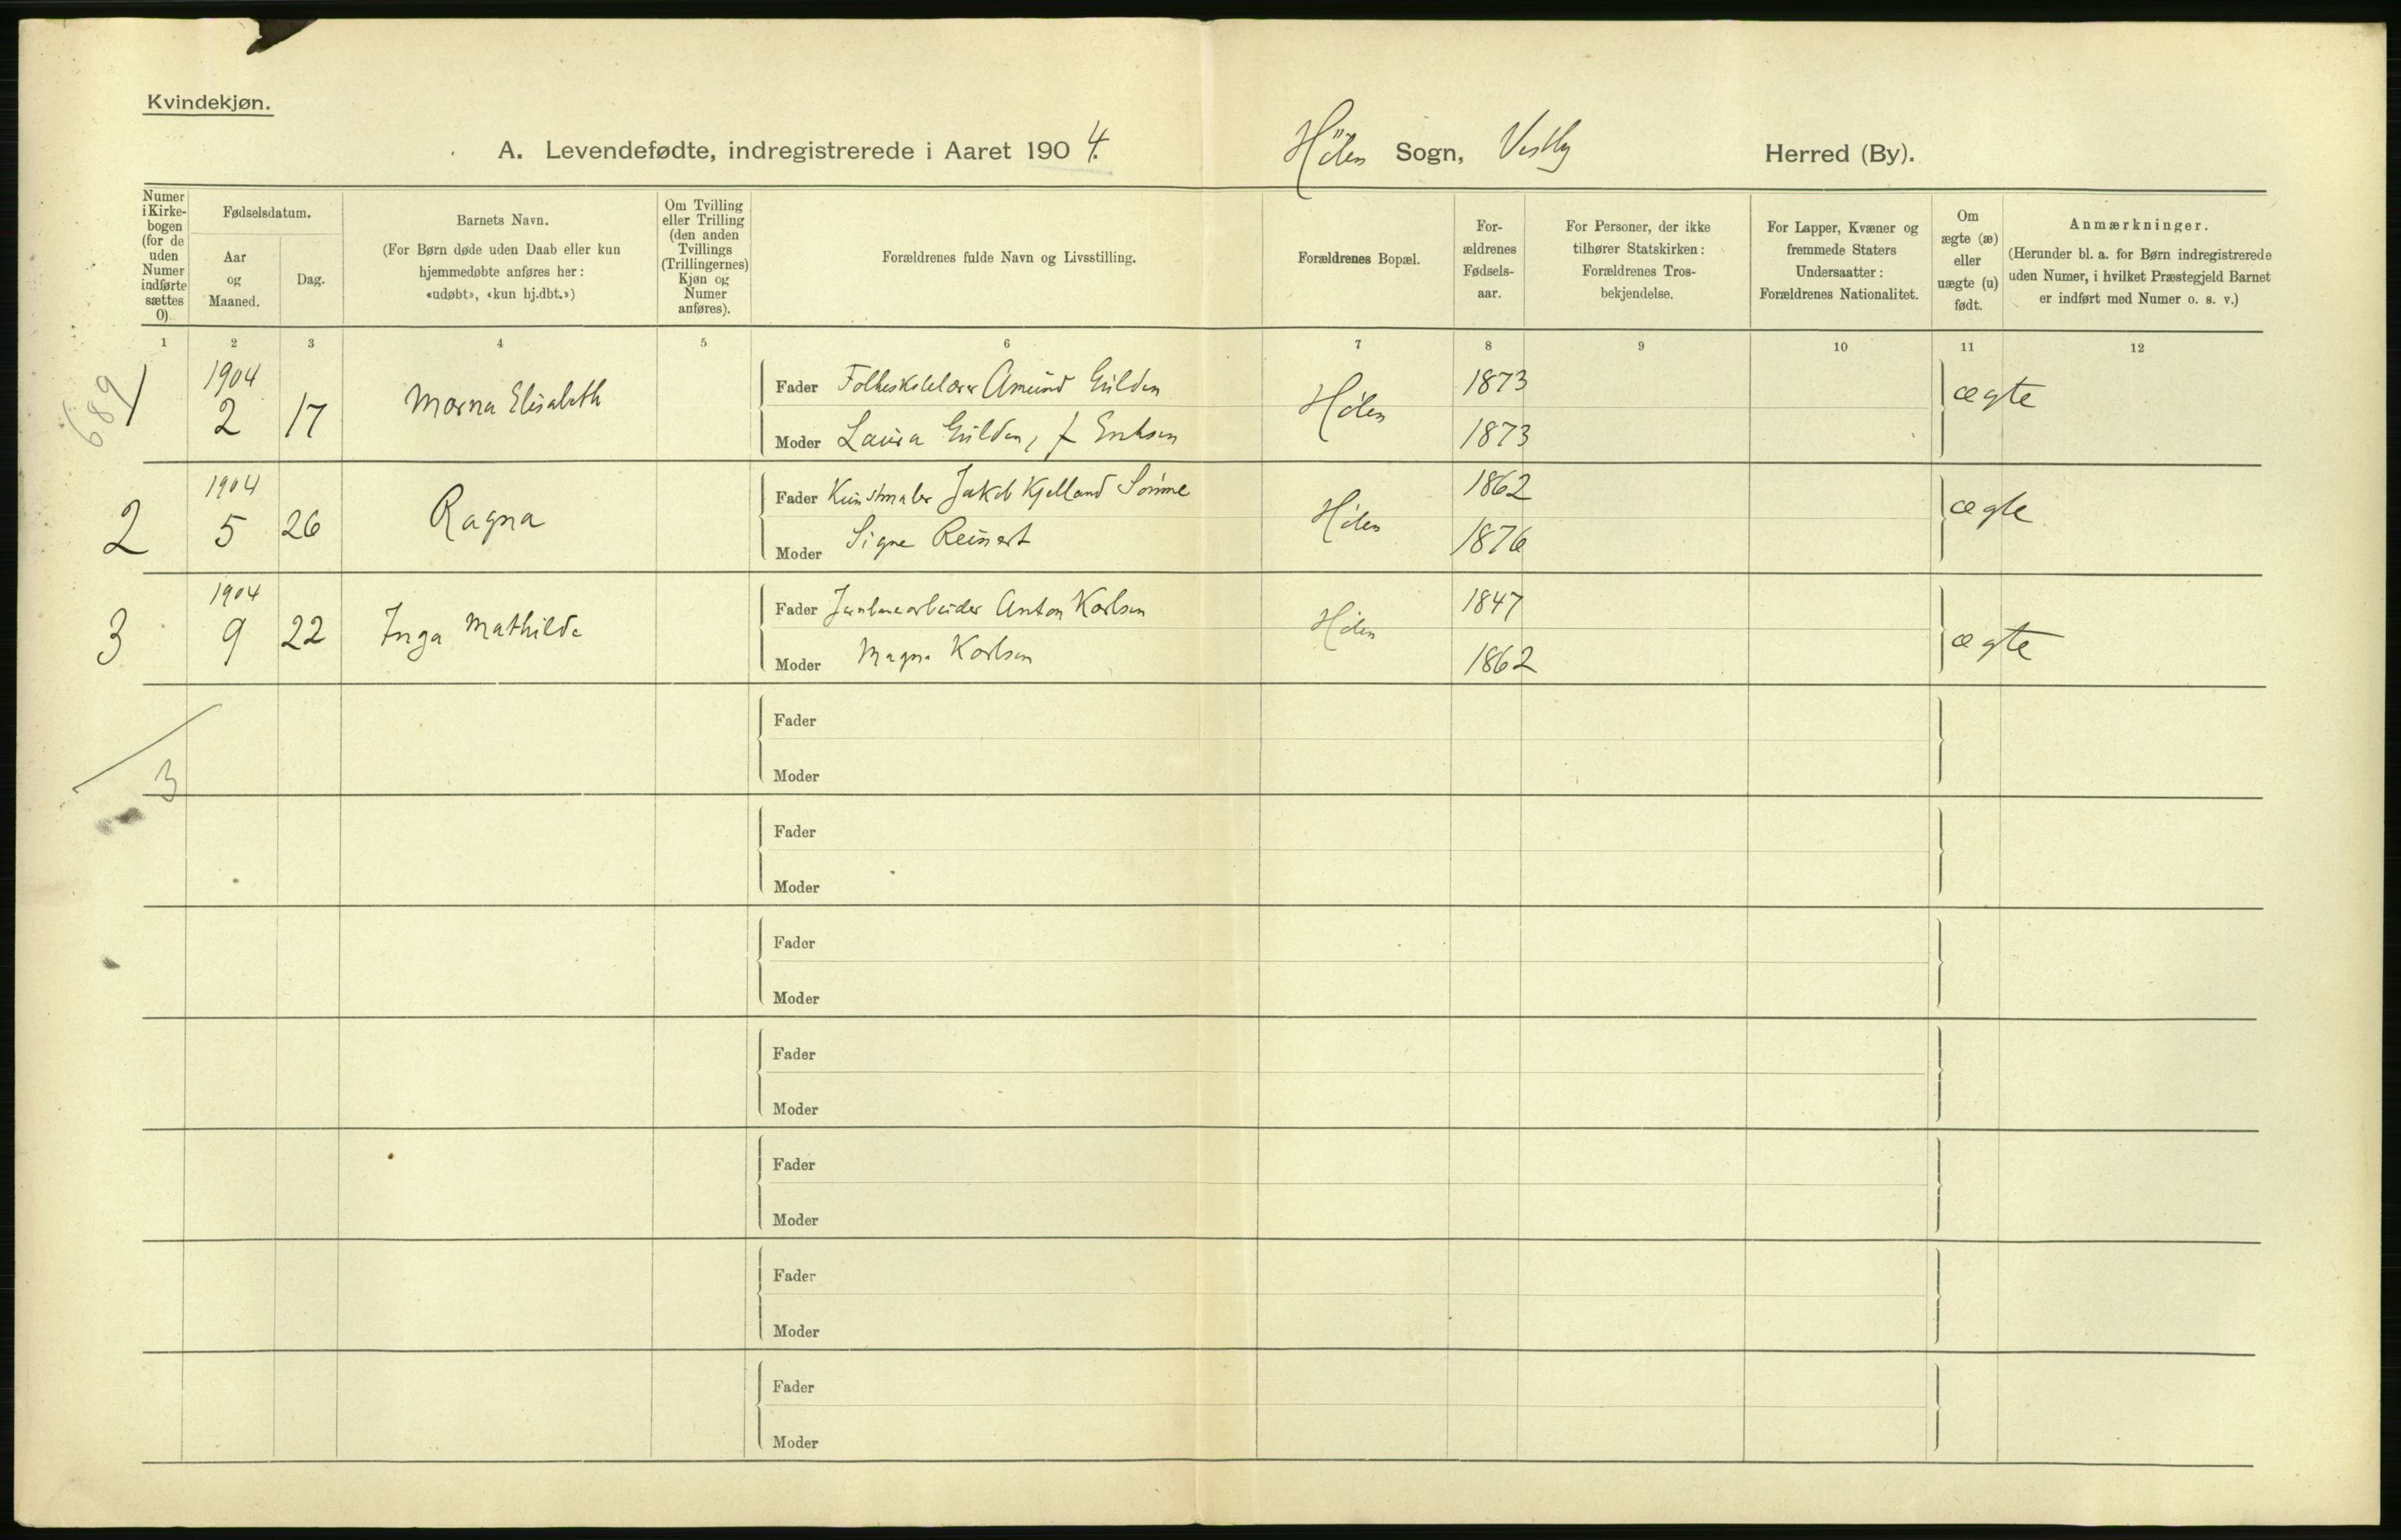 Kvindekjøn.
A. Levendefødte, indregistrerede i Aaret 1904. Hölen Sogn, Vestby Herred (By).
Numer i Kirkebogen (for de uden Numer indførte sættes 0).
Fødselsdatum.
Aar og Maaned.
Dag.
Barnets Navn.
(For Børn døde uden Daab eller kun
hjemmedøbte anføres her:
«udøbt», «kun hj.dbt.»)
Om Tvilling
eller Trilling
(den anden
Tvillings
(Trillingernes)
Kjøn og
Numer
anføres).
Forældrenes fulde Navn og Livsstilling.
Forældrenes Bopæl.
For-
ældrenes
Fødsels-
aar.
For Personer, der ikke
tilhører Statskirken:
Forældrenes Tros-
bekjendelse.
For Lapper, Kvæner og
fremmede Staters
Undersaatter:
Forældrenes Nationalitet.
Om
ægte (æ)
eller
uægte (u)
født.
Anmærkninger.
(Herunder bl. a. for Børn indregistrerede
uden Numer, i hvilket Præstegjeld Barnet
er indført med Numer o. s. v.)
1 2 3 4 5 6 7 8 9 10 11 12
689
1 1904 2 17 Marna Elisabeth Hölen ægte
Fader Folkeskolelærer Amund Gulden 1873
Moder Laura Gulden, f Eriksen 1873
2 1904 5 26 Ragna Hölen ægte
Fader Kunstmaler Jakob Kjelland Sömme 1862
Moder Signe Reinert 1876
3 1904 9 22 Inga Mathilde Hölen ægte
Fader Jernbanearbeider Anton Karlsen 1847
Moder Magna Karlsen 1862
3
Fader
Moder
Fader
Moder
Fader
Moder
Fader
Moder
Fader
Moder
Fader
Moder
Fader
Moder